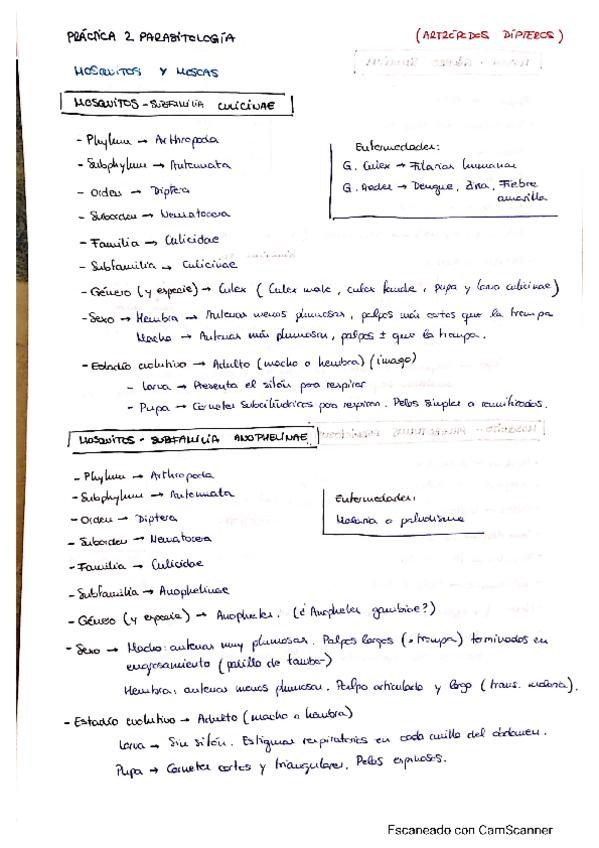 PRÁCTICA 2 PARASITOLOGÍA
(ARTRÓPODOS DÍPTEROS)
MOSQUITOS Y MOSCAS
MOSQUITOS - SUBFAMILIA CULICINAE
- Phyllum → Arthropoda
- Subphylum → Antennata
- Orden → Diptera
- Suborden → Nematocera
- Familia → Culicidae
- Subfamilia → Culicinae
Enfermedades:
G. Culex → Filarias humanas
G. Aedes → Dengue, Zika, Fiebre
amarilla
- Género (y especie) → Culex (Culex male, culex female, pupa y larva culicinae)
- Sexo → Hembra → Antenas menos plumosas, palpos más cortos que la trompa
Macho → Antenas más plumosas, palpos ± que la trompa.
- Estadio evolutivo → Adulto (macho o hembra) (imago)
- Larva → Presenta el sifón para respirar
- Pupa → Cornetes subcilíndricos para respirar. Pelos simples o ramificados.
MOSQUITOS - SUBFAMILIA ANOPHELINAE
- Phylum → Arthropoda
- Subphylum → Antennata
- Orden → Diptera
- Suborden → Nematocera
- Familia → Culicidae
- Subfamilia → Anophelinae
Enfermedades:
Malaria o paludismo
- Género (y especie) → Anopheles. (¿Anopheles gambiae?)
- Sexo → Macho: antenas muy plumosas. Palpos largos (= trompa) terminados en
engrosamiento (palillo de tambor)
Hembra: antenas menos plumosas. Palpo articulado y largo (trans. malaria).
- Estadío evolutivo → Adulto (macho o hembra)
Larva → Sin sifón. Estigmas respiratorios en cada anillo del abdomen.
Pupa → Cornetes cortos y triangulares. Pelos espinosos.
Escaneado con CamScanner